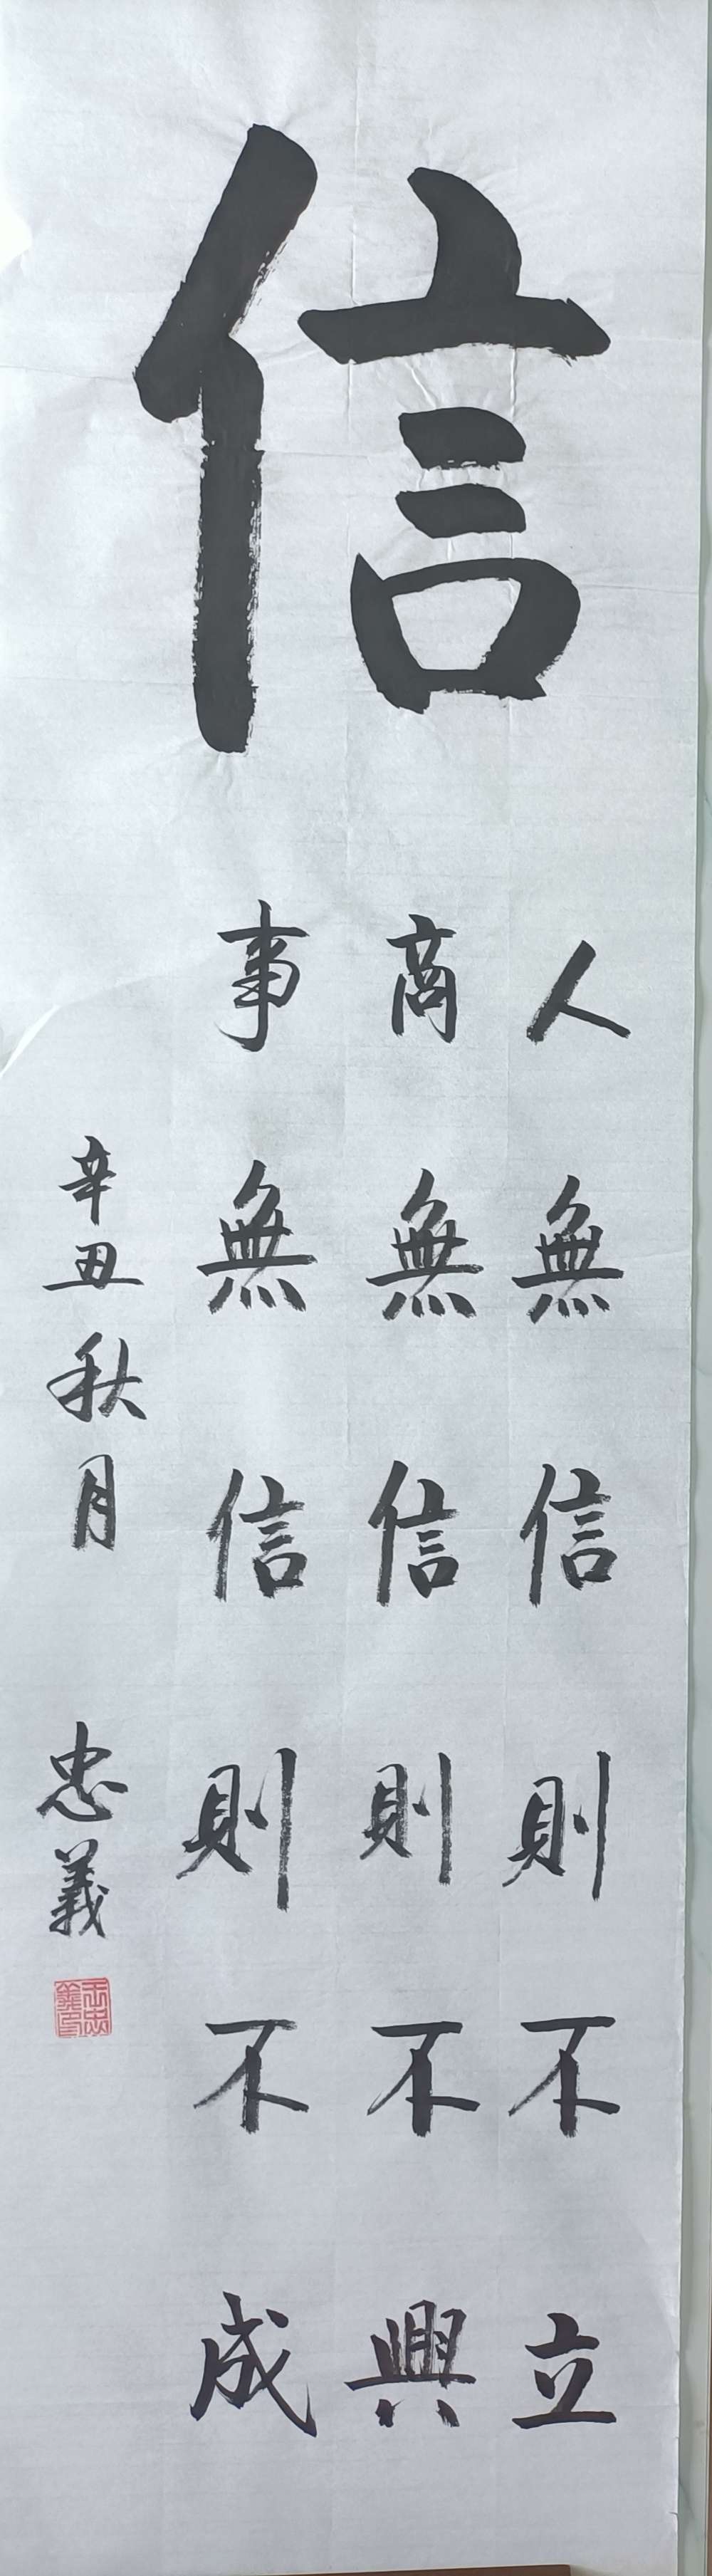 信
人無信則不立
商無信則不興
事無信則不成
辛丑秋月 忠義